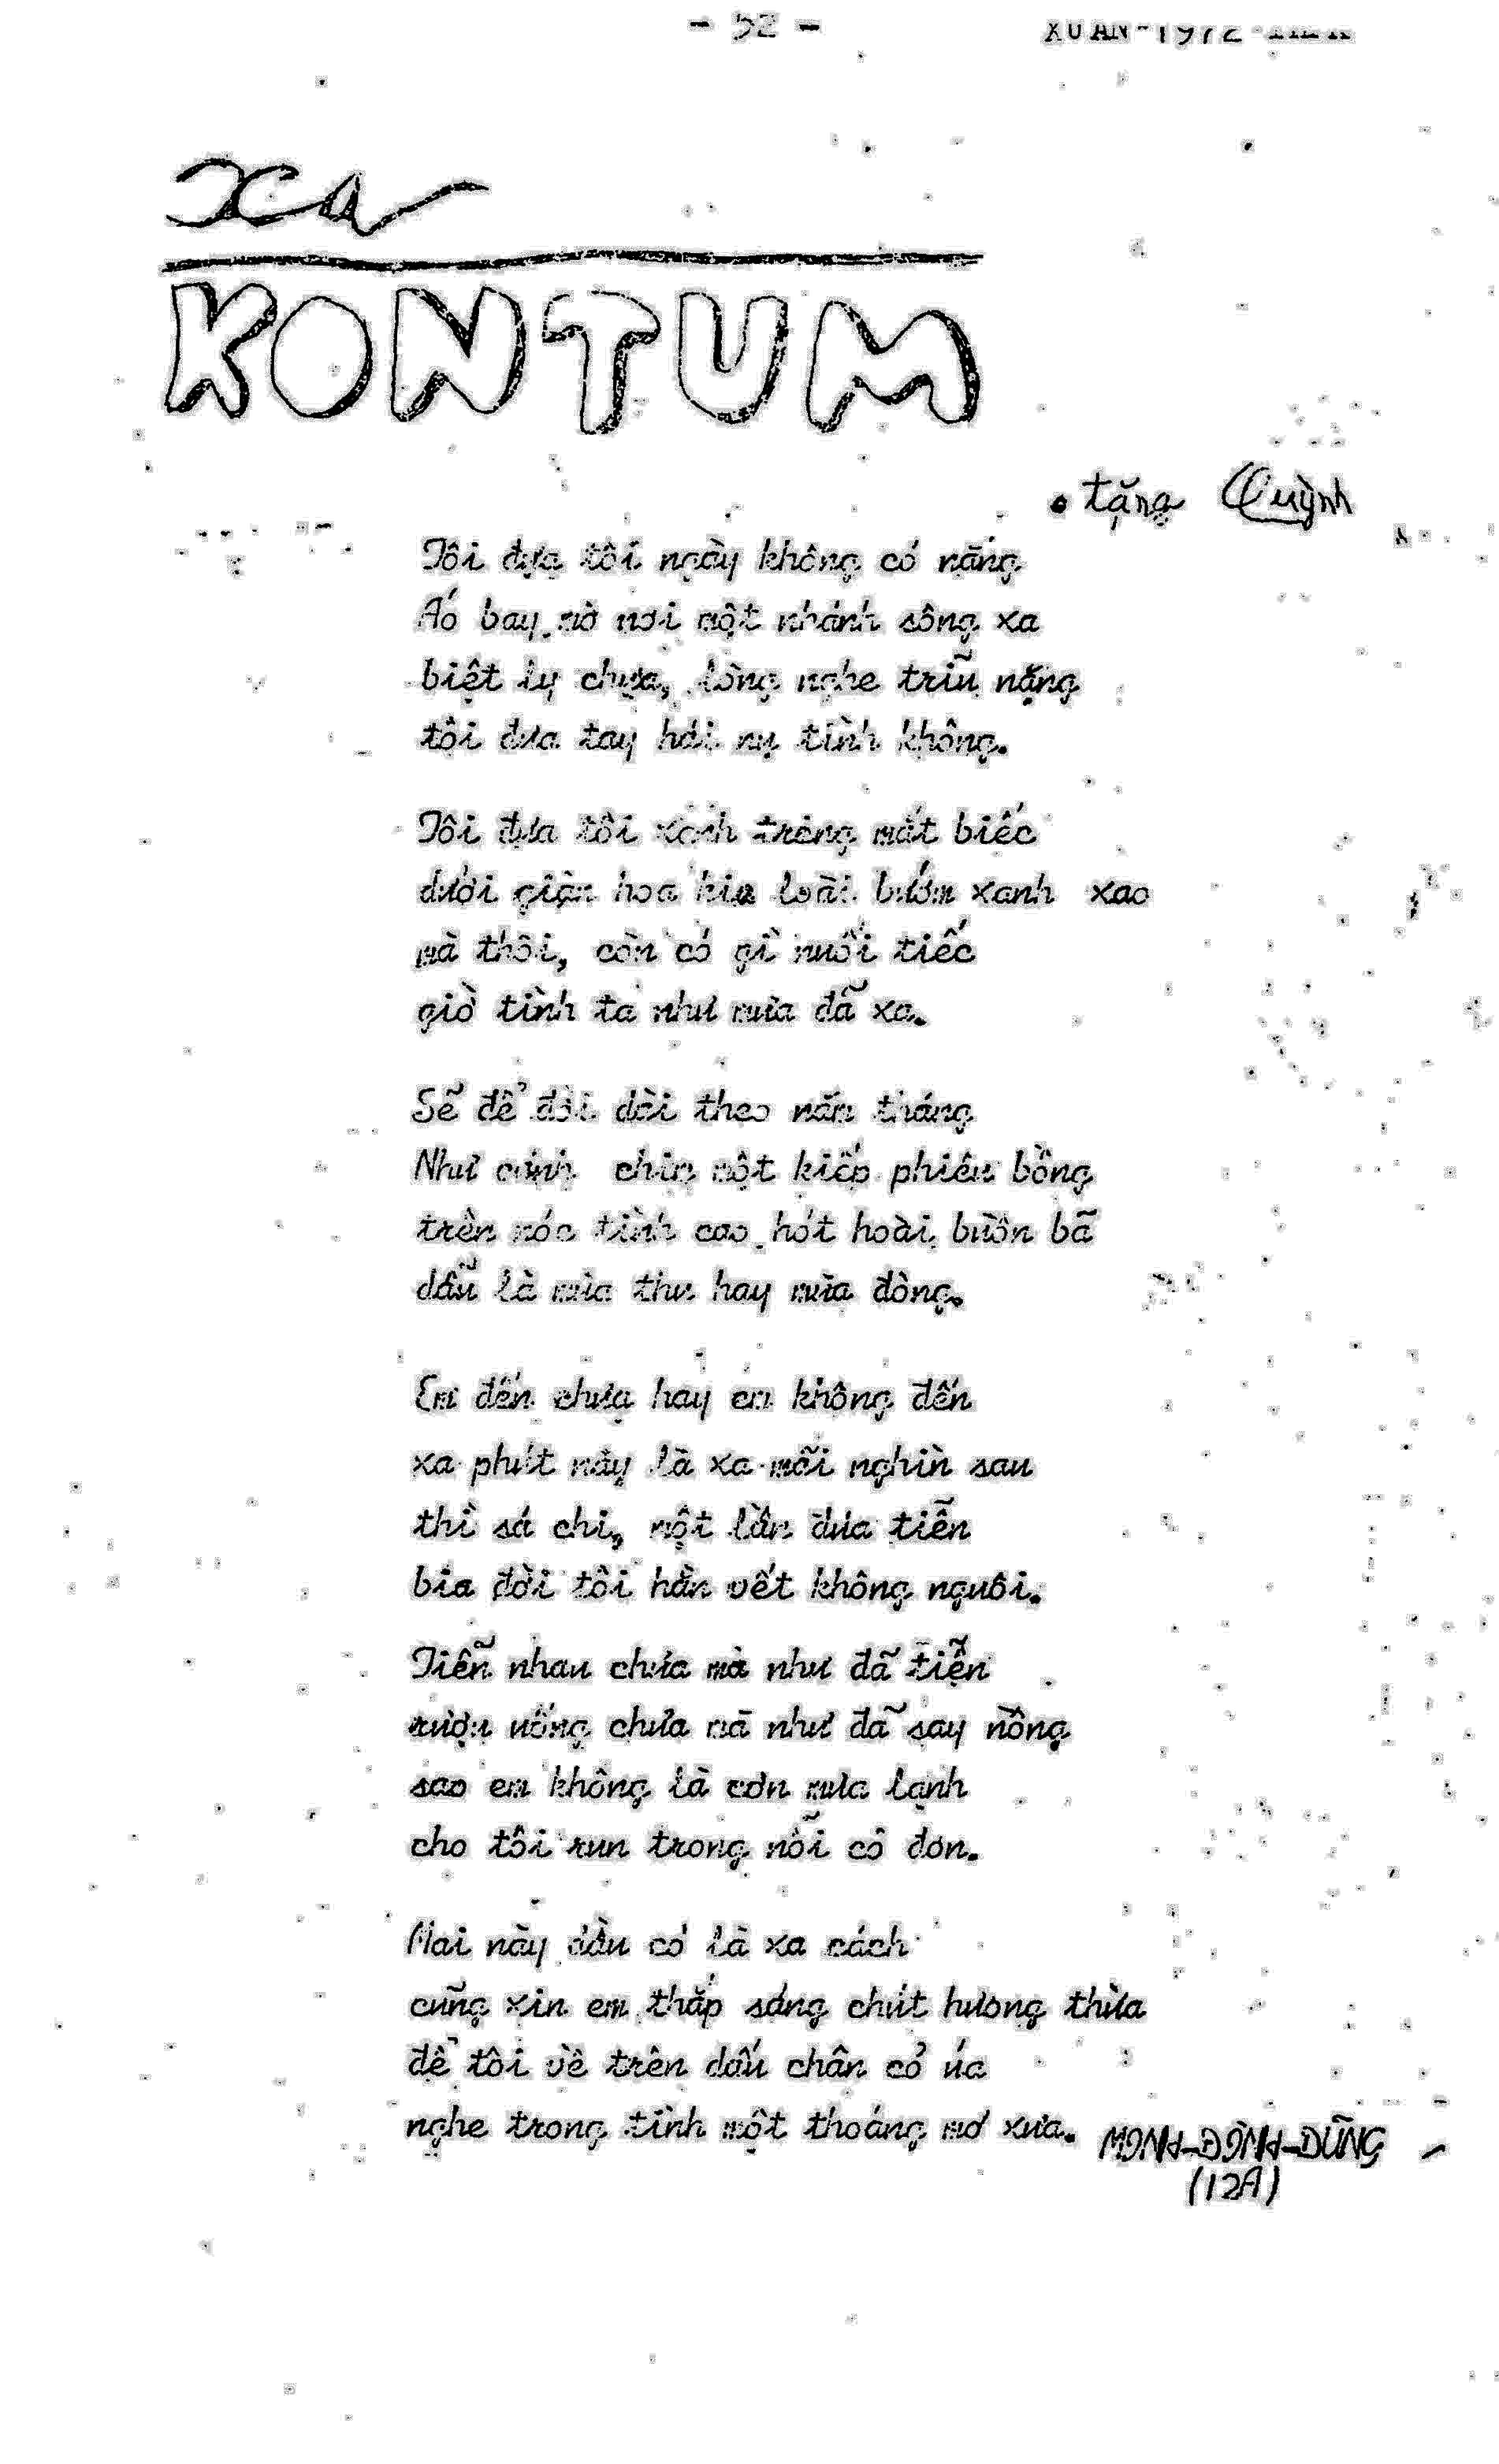 - 52 -
XUÂN-1972
Xa
KONTUM
• tặng Quỳnh
Tôi đưa tôi ngày không có nắng
Áo bay mờ nơi một nhánh sông xa
biệt ly chưa, lòng nghe trĩu nặng
tôi đưa tay hái nụ tình không.
Tôi đưa tôi xanh trong mắt biếc
dưới giàn hoa kia loài bướm xanh xao
mà thôi, còn có gì nuối tiếc
giờ tình ta như mưa đã xa.
Sẽ để đời dài theo năm tháng
Như cánh chim một kiếp phiêu bồng
trên nóc tình cao hót hoài buồn bã
dẫu là mùa thu hay mùa đông.
Em đến chưa hay em không đến
xa phút này là xa mãi nghìn sau
thì sá chi, một lần đưa tiễn
bia đời tôi hằn vết không nguôi.
Tiễn nhau chưa mà như đã tiễn
rượu nồng chưa mà như đã say nồng
sao em không là cơn mưa lạnh
cho tôi run trong nỗi cô đơn.
Mai này dầu có là xa cách
cũng xin em thắp sáng chút hương thừa
để tôi về trên dấu chân cỏ úa
nghe trong tình một thoáng mơ xưa.
MINH-ĐÌNH-DŨNG
(12A)